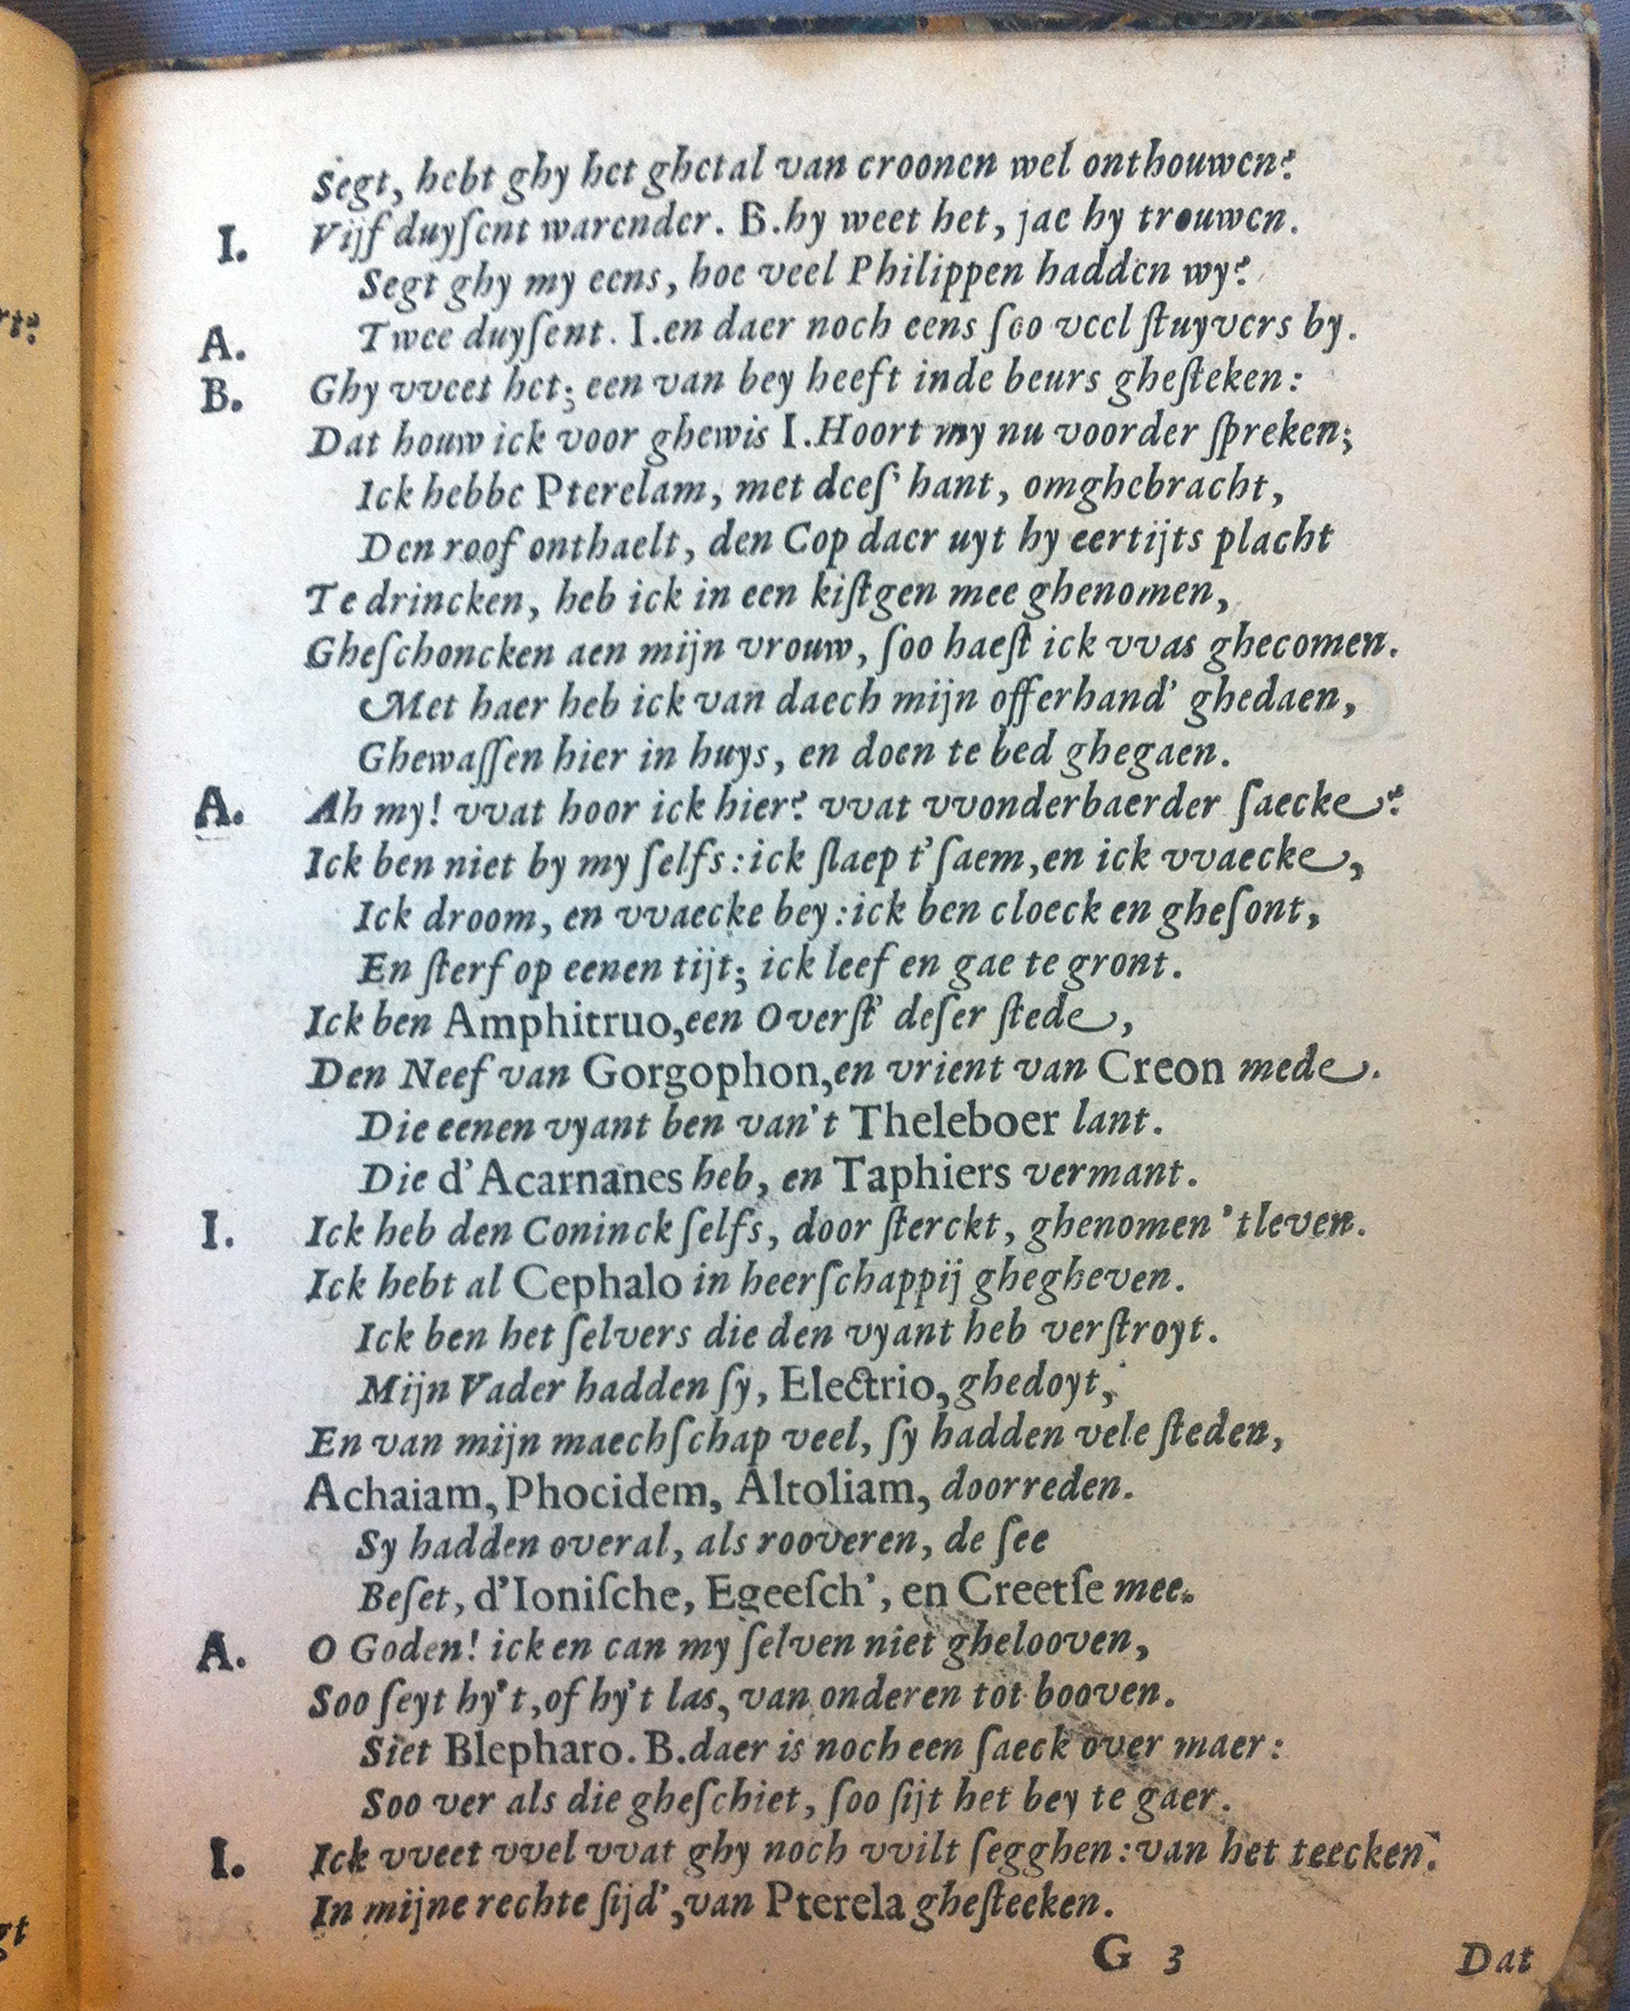 Segt, hebt ghy het ghetal van croonen wel onthouwen?
I. Vijf duyſent warender. B. hy weet het, jae hy trouwen.
Segt ghy my eens, hoe veel Philippen hadden wy?
A. Twee duyſent. I. en daer noch eens ſoo veel ſtuyvers by.
B. Ghy vveet het; een van bey heeft inde beurs gheſteken:
Dat houw ick voor ghewis I. Hoort my nu voorder ſpreken;
Ick hebbe Pterelam, met deeſ' hant, omghebracht,
Den roof onthaelt, den Cop daer uyt hy eertijts placht
Te drincken, heb ick in een kiſtgen mee ghenomen,
Gheſchoncken aen mijn vrouw, ſoo haeſt ick vvas ghecomen.
Met haer heb ick van daech mijn offerhand' ghedaen,
Ghewaſſen hier in huys, en doen te bed ghegaen.
A. Ah my! vvat hoor ick hier? vvat vvonderbaerder ſaecke?
Ick ben niet by my ſelfs: ick ſlaep t'ſaem, en ick vvaecke,
Ick droom, en vvaecke bey: ick ben cloeck en gheſont,
En ſterf op eenen tijt; ick leef en gae te gront.
Ick ben Amphitruo, een Overſt' deſer ſtede,
Den Neef van Gorgophon, en vrient van Creon mede.
Die eenen vyant ben van't Theleboer lant.
Die d'Acarnanes heb, en Taphiers vermant.
I. Ick heb den Coninck ſelfs, door ſterckt, ghenomen 'tleven.
Ick hebt al Cephalo in heerſchappij ghegheven.
Ick ben het ſelvers die den vyant heb verſtroyt.
Mijn Vader hadden ſy, Electrio, ghedoyt,
En van mijn maechſchap veel, ſy hadden vele ſteden,
Achaiam, Phocidem, Altoliam, doorreden.
Sy hadden overal, als rooveren, de ſee
Beſet, d'Ioniſche, Egeeſch', en Creetſe mee.
A. O Goden! ick en can my ſelven niet ghelooven,
Soo ſeyt hy't, of hy't las, van onderen tot booven.
Siet Blepharo. B. daer is noch een ſaeck over maer:
Soo ver als die gheſchiet, ſoo ſijt het bey te gaer.
I. Ick vveet vvel vvat ghy noch vvilt ſegghen: van het teecken.
In mijne rechte ſijd', van Pterela gheſteeken.
G 3 Dat